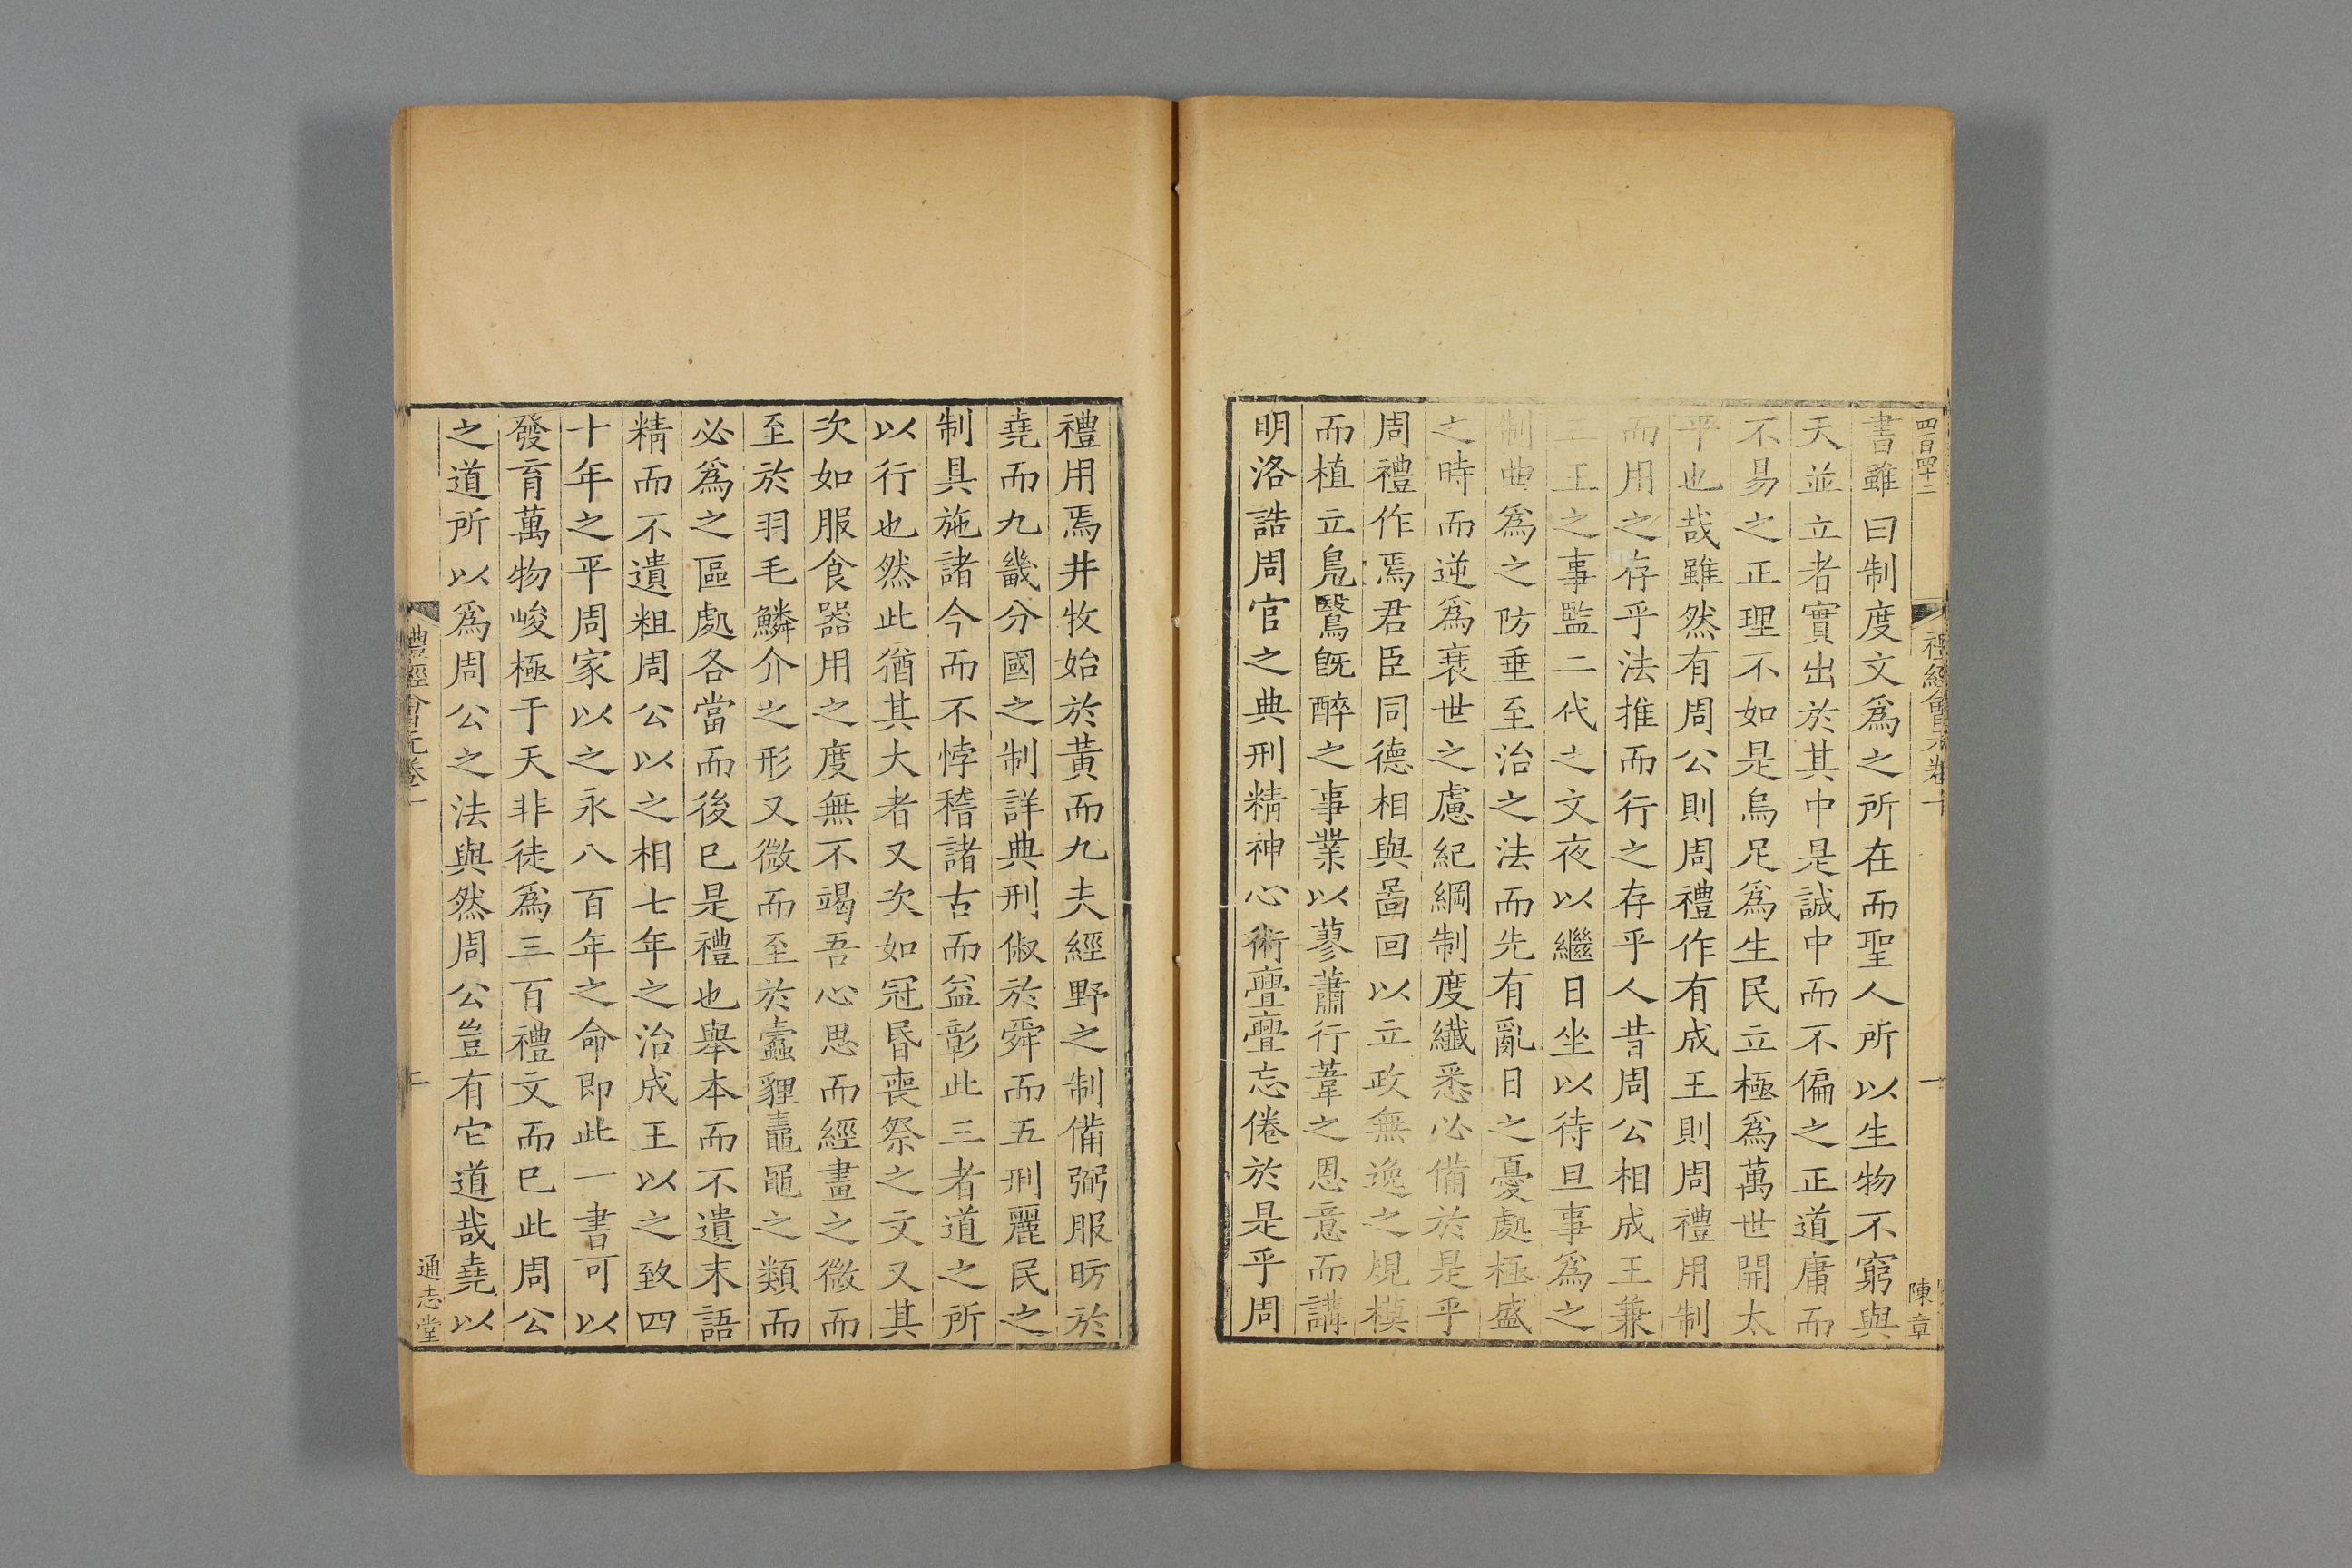 四百四十二
禮經會元卷一
一
陳章
書雖曰制度文爲之所在而聖人所以生物不窮與
天並立者實出於其中是誠中而不偏之正道庸而
不易之正理不如是烏足爲生民立極爲萬世開太
平也哉雖然有周公則周禮作有成王則周禮用制
而用之存乎法推而行之存乎人昔周公相成王兼
三王之事監二代之文夜以繼日坐以待旦事爲之
制曲爲之防垂至治之法而先有亂日之憂處極盛
之時而逆爲衰世之慮紀綱制度纖悉必備於是乎
周禮作焉君臣同德相與啚回以立政無逸之規模
而植立鳧鷖旣醉之事業以蓼蕭行葦之恩意而講
明洛誥周官之典刑精神心術亹亹忘倦於是乎周
禮用焉井牧始於黃而九夫經野之制備弼服昉於
堯而九畿分國之制詳典刑俶於舜而五刑麗民之
制具施諸今而不悖稽諸古而益彰此三者道之所
以行也然此猶其大者又次如冠昏喪祭之文又其
次如服食器用之度無不竭吾心思而經畫之微而
至於羽毛鱗介之形又微而至於蠹貍鼃黽之類而
必爲之區處各當而後已是禮也舉本而不遺末語
精而不遺粗周公以之相七年之治成王以之致四
十年之平周家以之永八百年之命即此一書可以
發育萬物峻極于天非徒爲三百禮文而巳此周公
之道所以爲周公之法與然周公豈有它道哉堯以
禮經會元卷一
通志堂